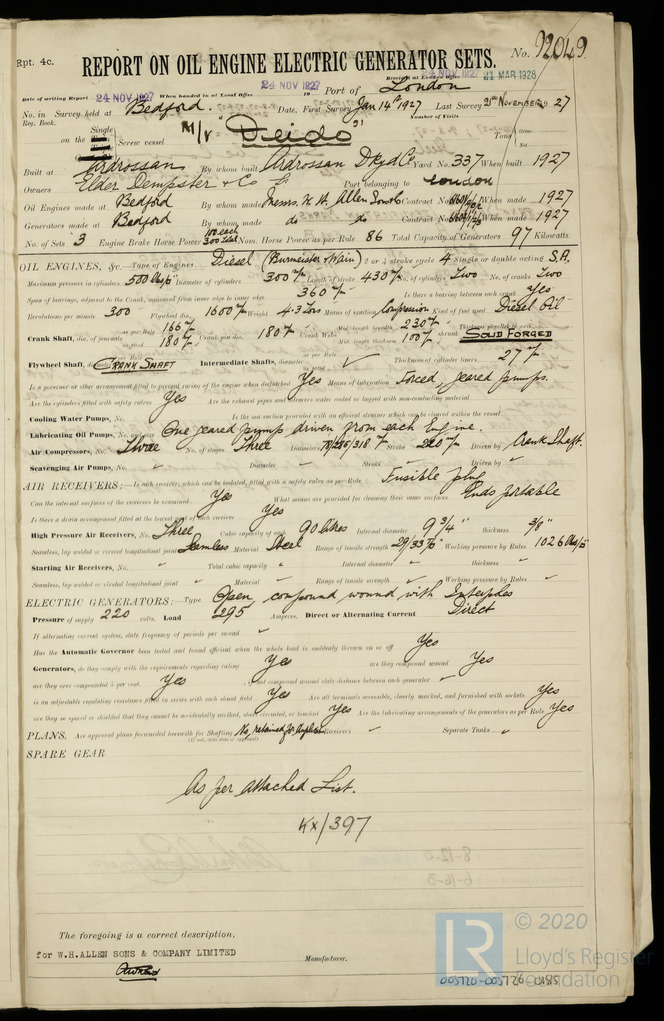 Rpt. 4c.
REPORT ON OIL ENGINE ELECTRIC GENERATOR SETS. No. 92049
Received at London Office 24 NOV 1927 21 MAR 1928
Date of writing Report 24 NOV 1927 When handed in at Local Office 24 NOV 1927 Port of London
No. in Survey held at Bedford. Date, First Survey Jan 14th 1927 Last Survey 21st November 1927
Reg. Book. Number of Visits
on the Single Screw vessel M/V "Deido" Tons
Built at Ardrossan By whom built Ardrossan D Yd Co Yard No. 337 When built 1927
Owners Elder Dempster & Co Ld Port belonging to London
Oil Engines made at Bedford By whom made Messrs. W. H. Allen Sons & Co Contract No. When made 1927
Generators made at Bedford By whom made do do Contract No. When made 1927
No. of Sets 3 Engine Brake Horse Power Nom. Horse Power as per Rule 86 Total Capacity of Generators 97 Kilowatts.
OIL ENGINES, &c.—Type of Engines Diesel (Burmeister & Wain) 2 or 4 stroke cycle 4 Single or double acting S.A.
Maximum pressure in cylinders 500 lbs/□" Diameter of cylinders 300 m/m Length of stroke 430 m/m No. of cylinders Two No. of cranks Two
Span of bearings, adjacent to the Crank, measured from inner edge to inner edge 360 m/m Is there a bearing between each crank Yes
Revolutions per minute 300 Flywheel dia. 1600 m/m Weight 4.3 Tons Means of ignition Compression Kind of fuel used Diesel Oil
Crank Shaft, dia. of journals as per Rule 166 m/m as fitted 180 m/m Crank pin dia. 180 m/m Crank Webs Mid. length breadth 230 m/m Mid. length thickness 100 m/m shrunk Thickness parallel to axis SOLID FORGED
Flywheel Shaft, CRANK SHAFT Intermediate Shafts, diameter as per Rule as fitted ✓ Thickness of cylinder liners 27 m/m
Is a governor or other arrangement fitted to prevent racing of the engine when declutched Yes Means of lubrication Forced, geared pumps.
Are the cylinders fitted with safety valves Yes Are the exhaust pipes and silencers water cooled or lagged with non-conducting material
Cooling Water Pumps, No. Is the sea suction provided with an efficient strainer which can be cleared within the vessel
Lubricating Oil Pumps, No. and size One geared pump driven from each Engine.
Air Compressors, No. Three No. of stages Three Diameters 78/286/318 m/m Stroke 220 m/m Driven by Crank Shaft.
Scavenging Air Pumps, No. " Diameter " Stroke " Driven by "
AIR RECEIVERS:—Is each receiver, which can be isolated, fitted with a safety valve as per Rule Fusible plug
Can the internal surfaces of the receivers be examined Yes What means are provided for cleaning their inner surfaces Ends portable
Is there a drain arrangement fitted at the lowest part of each receiver Yes
High Pressure Air Receivers, No. Three Cubic capacity of each 90 litres Internal diameter 9 3/4" thickness 3/8"
Seamless, lap welded or riveted longitudinal joint Seamless Material Steel Range of tensile strength 29/33 Working pressure by Rules 1026 lbs/□"
Starting Air Receivers, No. " Total cubic capacity " Internal diameter " thickness "
Seamless, lap welded or riveted longitudinal joint " Material " Range of tensile strength " Working pressure by Rules "
ELECTRIC GENERATORS:—Type Open, compound wound with Interpoles
Pressure of supply 220 volts. Load 295 Amperes. Direct or Alternating Current Direct
If alternating current system, state frequency of periods per second
Has the Automatic Governor been tested and found efficient when the whole load is suddenly thrown on or off Yes
Generators, do they comply with the requirements regarding rating Yes are they compound wound Yes
are they over compounded 5 per cent. Yes , if not compound wound state distance between each generator
is an adjustable regulating resistance fitted in series with each shunt field Yes Are all terminals accessible, clearly marked, and furnished with sockets Yes
are they so spaced or shielded that they cannot be accidentally earthed, short circuited, or touched Yes Are the lubricating arrangements of the generators as per Rule Yes
PLANS. Are approved plans forwarded herewith for Shafting No, retained for Receivers ✓ Separate Tanks "
(If not, state date of approval)
SPARE GEAR
As per attached List.
4x/397
The foregoing is a correct description,
for W.H.ALLEN SONS & COMPANY LIMITED
Manufacturer.
LR
© 2020
Lloyd's Register
Foundation
005720-005726-0185